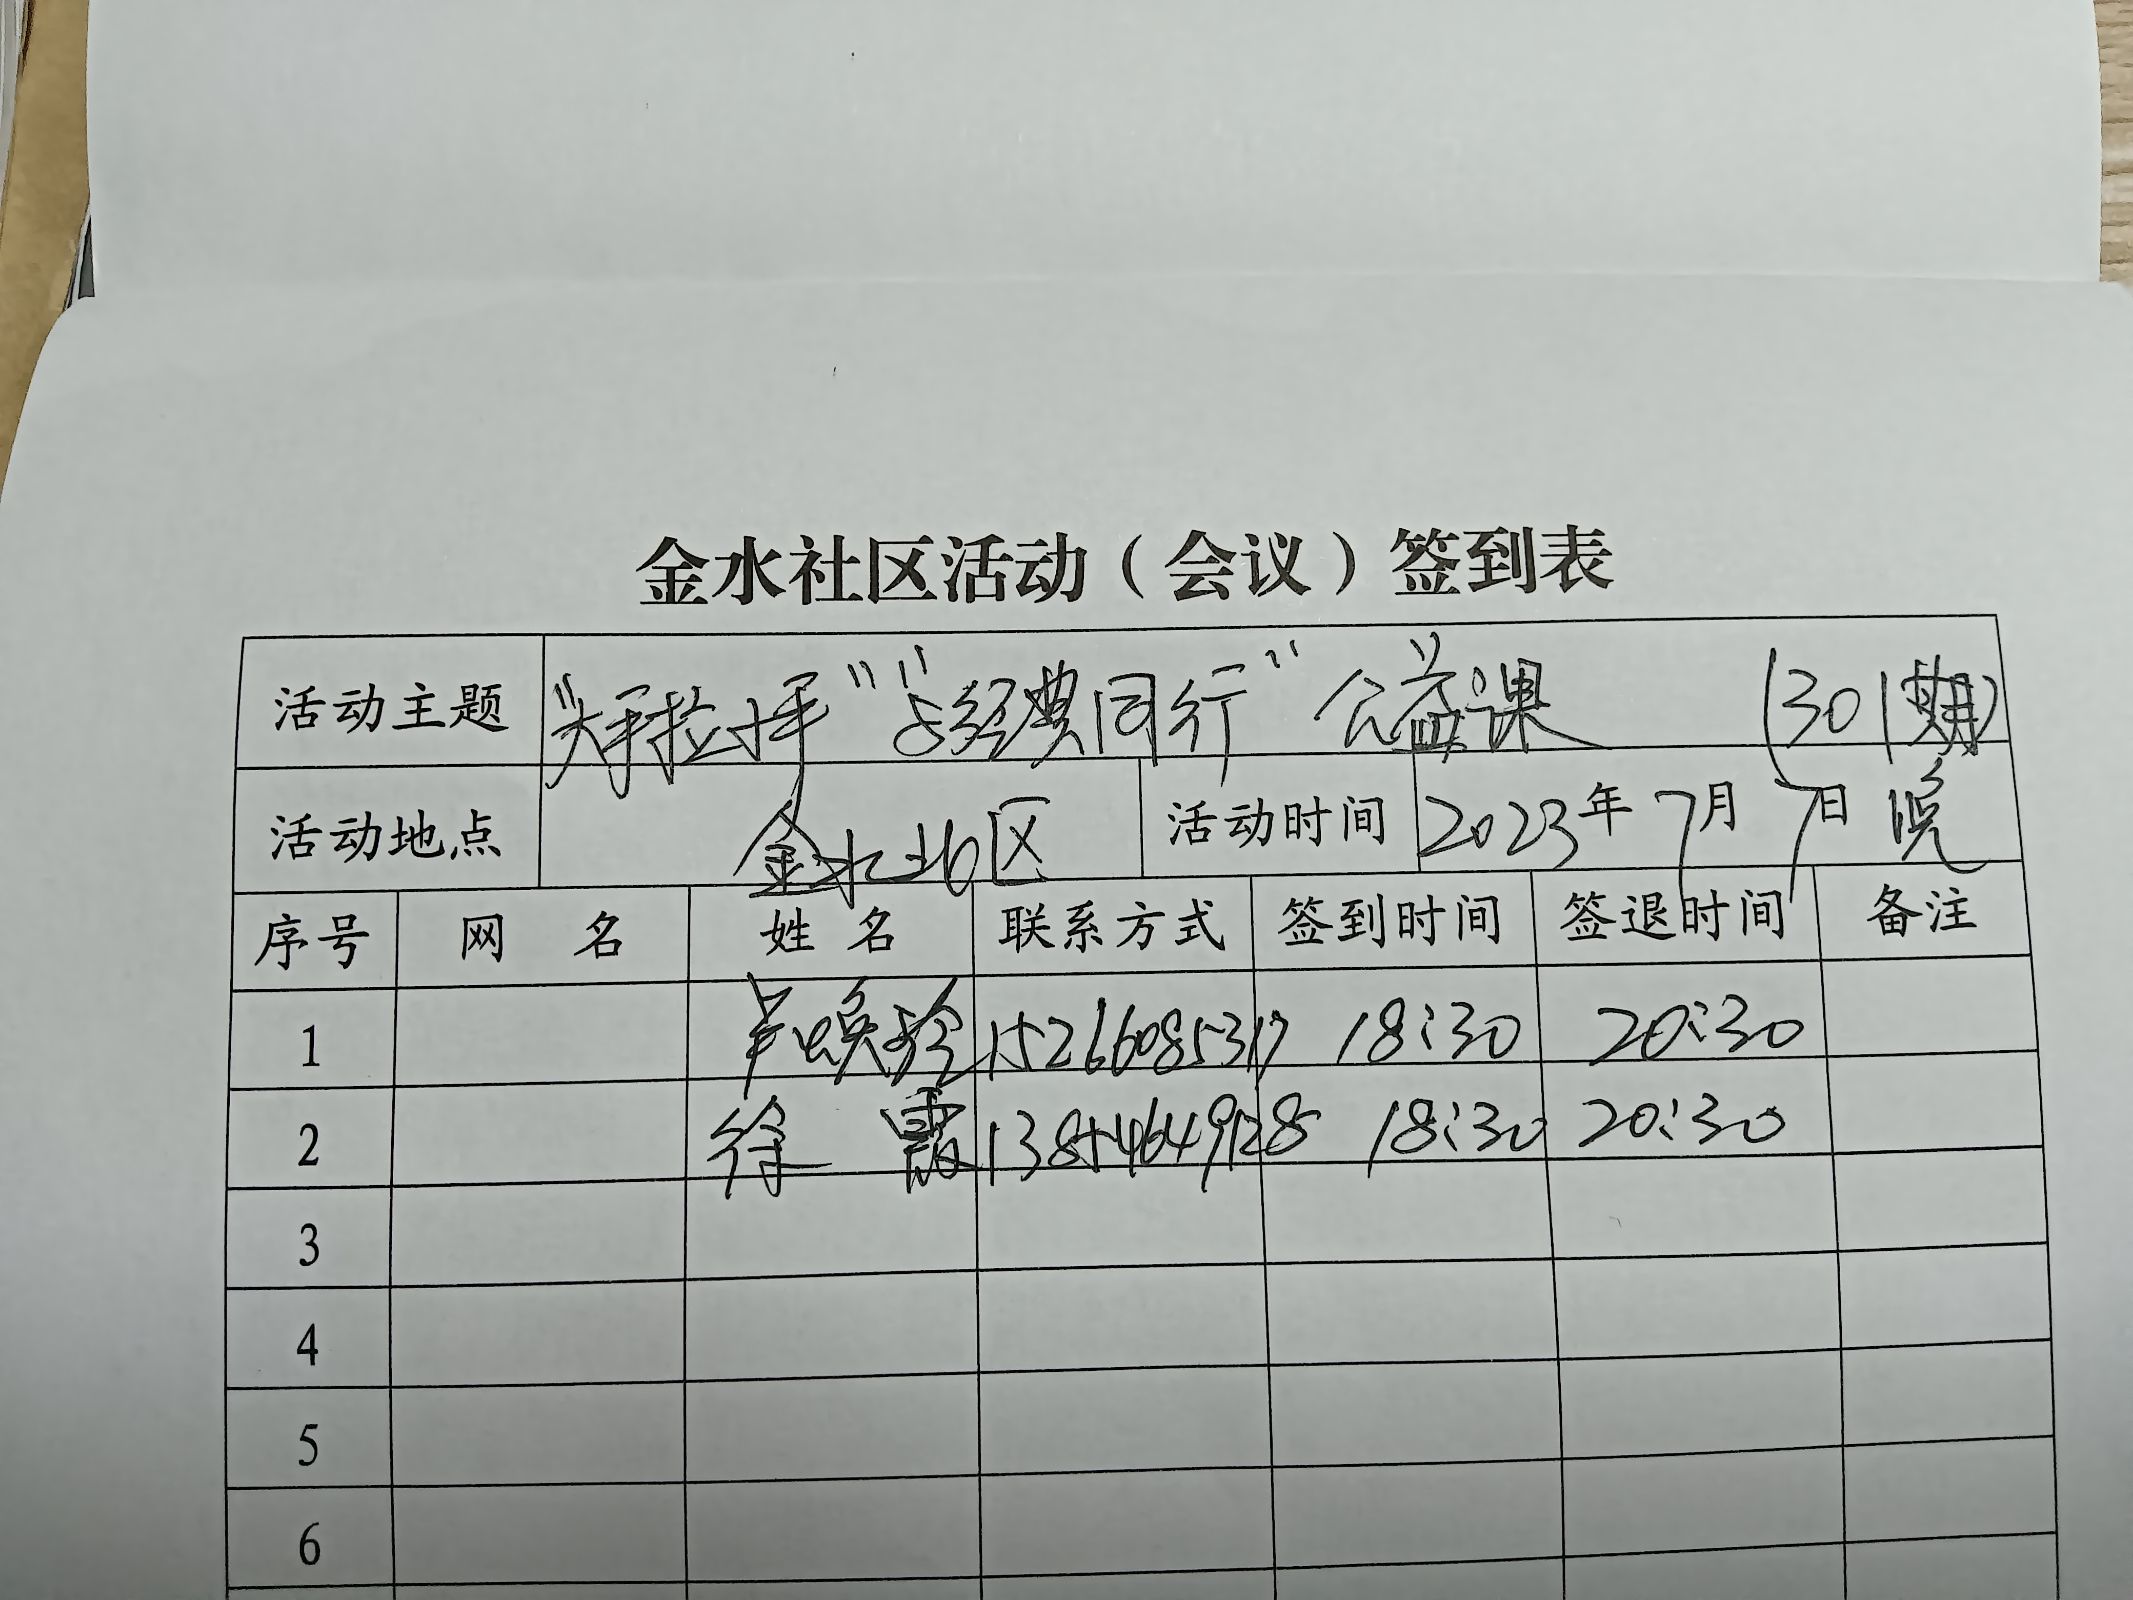 金水社区活动（会议）签到表
活动主题 “大手拉小手”“与经典同行”公益课 （301期）
活动地点 金水北区 活动时间 2023年7月7日 晚
序号 网 名 姓 名 联系方式 签到时间 签退时间 备注
1 15266085317 18:30 20:30
2 徐 霞 13854649128 18:30 20:30
3
4
5
6